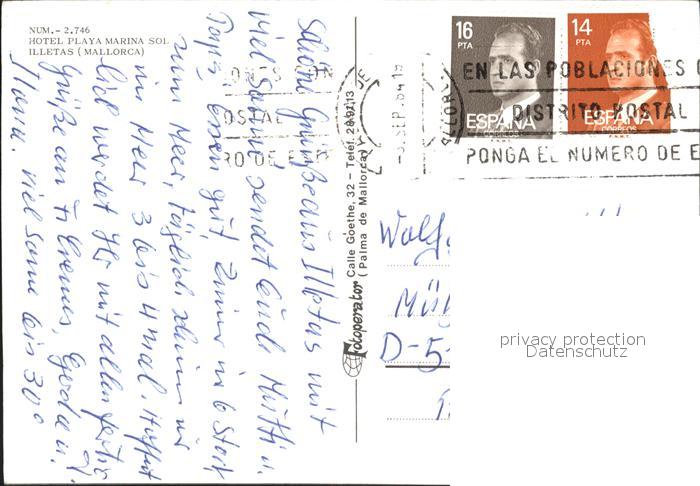 NUM.- 2.746
HOTEL PLAYA MARINA SOL
ILLETAS (MALLORCA)
Schöne Grüße aus Illetas mit
viel Sonne sendet Euch Mutti u.
Papa, Essen gut, Zimmer im 6 Stock
zum Meer, täglich wir
im Meer 3 bis 4 mal. Hoffentlich
werdet Ihr mit allem fertig
Grüße an Gerda u.
viel Sonne bis 30°
Fotoperator
Calle Goethe, 32 - Teléf. 289713
(Palma de Mallorca)
16
PTA
ESPAÑA
CORREOS
14
PTA
ESPAÑA
CORREOS
SEP. 84 19
EN LAS POBLACIONES
DISTRITO POSTAL
PONGA EL NUMERO DE E
Wolfg
D-5
privacy protection
Datenschutz